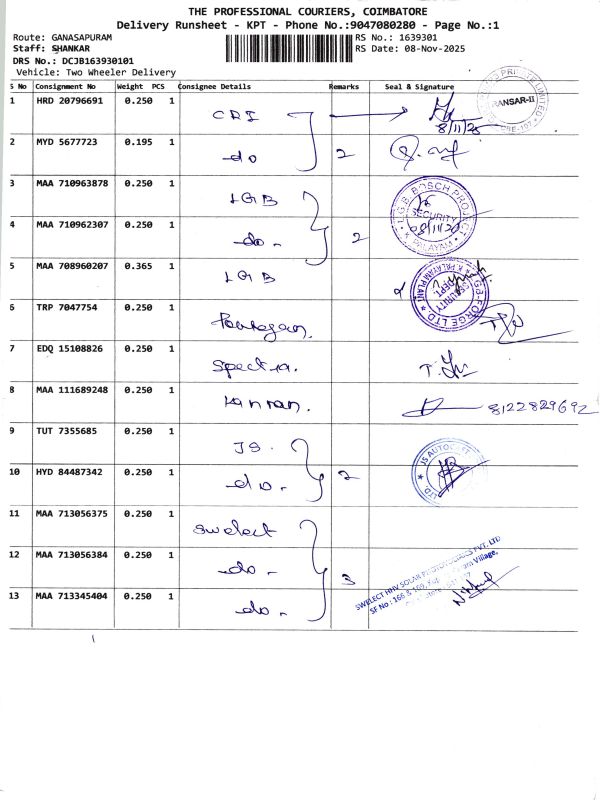 THE PROFESSIONAL COURIERS, COIMBATORE
Delivery Runsheet - KPT - Phone No.:9047080280 - Page No.:1
Route: GANASAPURAM
RS No.: 1639301
Staff: SHANKAR
RS Date: 08-Nov-2025
DRS No.: DCJB163930101
Vehicle: Two Wheeler Delivery
S No Consignment No Weight PCS Consignee Details Remarks Seal & Signature
1 HRD 20796691 0.250 1 CRI 8/11/25
2 MYD 5677723 0.195 1 do 2
3 MAA 710963878 0.250 1 LGB
L.G.B. BOSCH PROJECT
SECURITY
K. PALAYAM
4 MAA 710962307 0.250 1 do - 2
5 MAA 708960207 0.365 1 LGB
SECURITY DEPT
6 TRP 7047754 0.250 1
7 EDQ 15108826 0.250 1 Spectra.
8 MAA 111689248 0.250 1 8122829692
9 TUT 7355685 0.250 1 JS.
JS AUTOCAST
LTD.
10 HYD 84487342 0.250 1 do - 2
11 MAA 713056375 0.250 1 Swelect
12 MAA 713056384 0.250 1 do - 3
SWELECT HHV SOLAR PHOTOVOLTAICS PVT. LTD
13 MAA 713345404 0.250 1 do -